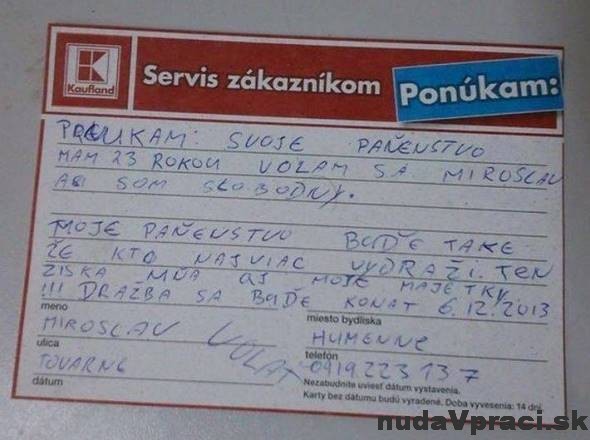 Kaufland
Servis zákazníkom
Ponúkam:
PONUKAM: SVOJE PAŇENSTVO
MAM 23 ROKOU VOLAM SA MIROSLAV
AC SOM SLOBODNY.
MOJE PAŇENSTVO BUĎE TAKE
ŽE KTO NAJVIAC VYDRAŽI. TEN
ZISKA MŇA AJ MOJE MAJETKY
!!! DRAŽBA SA BUĎE KONAT 6.12.2013
meno
miesto bydliska
MIROSLAV
VOLAŤ
HUMENNE
ulica
telefón
TOVARNE
0919223137
dátum
Nezabudnite uviesť dátum vystavenia.
Karty bez dátumu budú vyradené. Doba vyvesenia: 14 dní.
nudaVpraci.sk